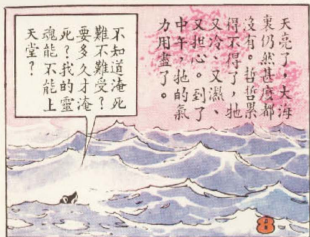 天亮了，大海
裏仍然甚麼都
沒有。哲哲累
得不得了，牠
又冷、又濕、
又担心。到了
中午，牠的氣
力用盡了。
不知道淹死
難不難受？
要多久才淹
死？我的靈
魂能不能上
天堂？
8